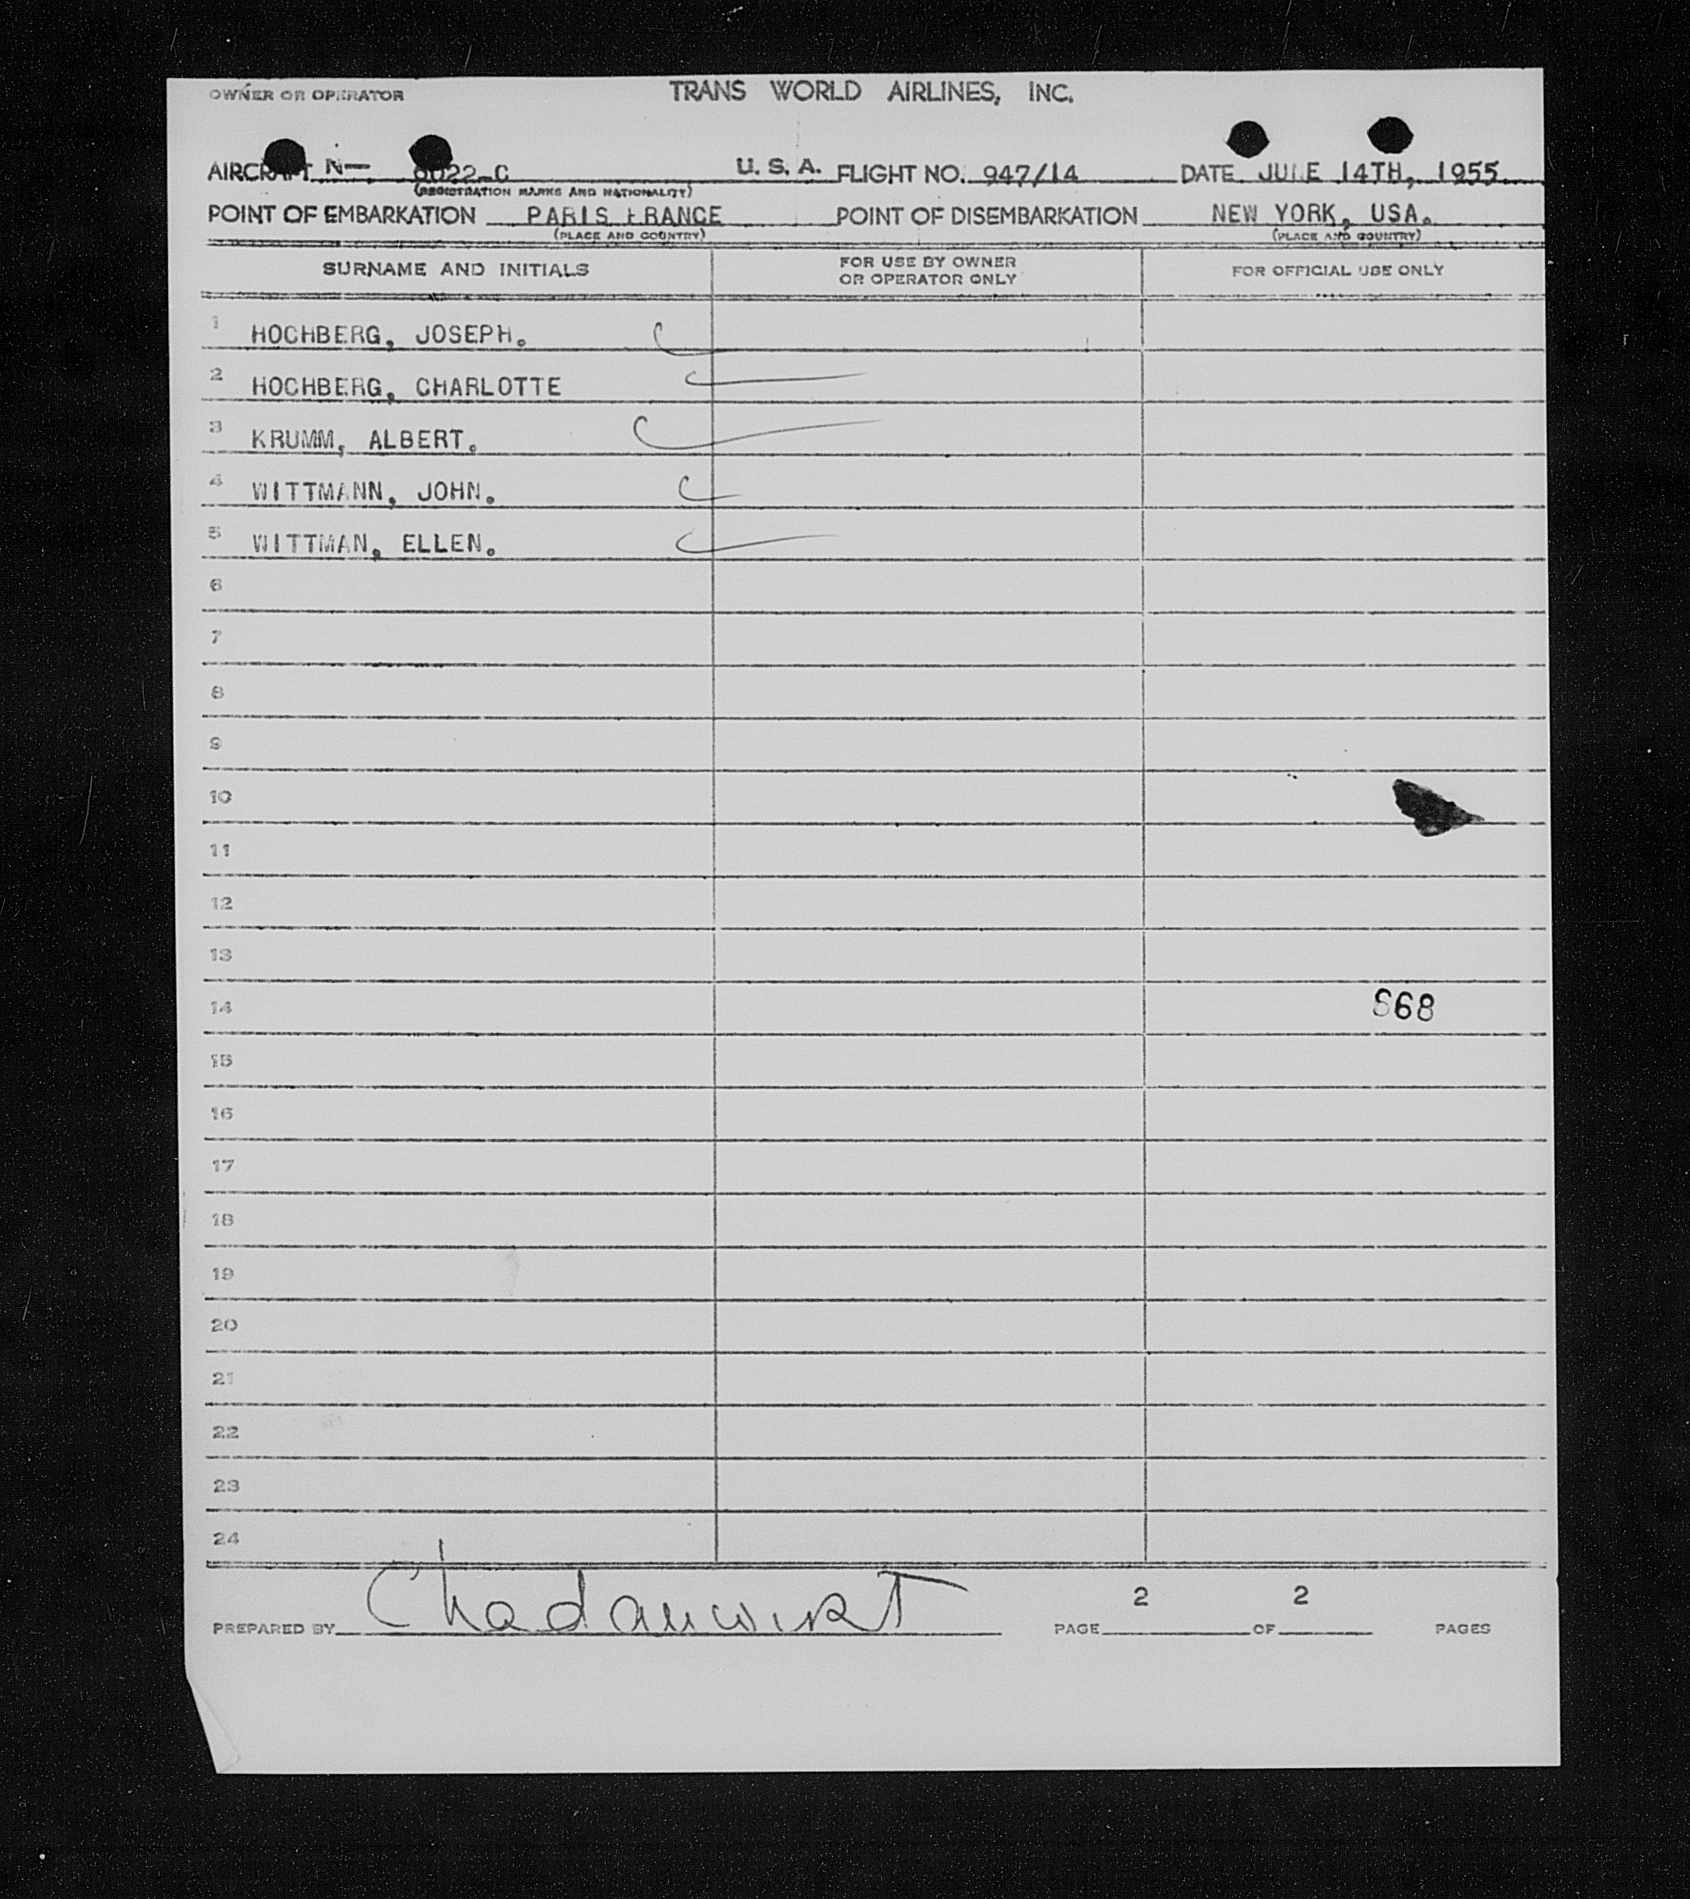 OWNER OR OPERATOR TRANS WORLD AIRLINES, INC.
AIRCRAFT N— 6022-C U. S. A. FLIGHT NO. 947/14 DATE JUNE 14TH, 1955
(REGISTRATION MARKS AND NATIONALITY)
POINT OF EMBARKATION PARIS FRANCE POINT OF DISEMBARKATION NEW YORK, USA.
(PLACE AND COUNTRY) (PLACE AND COUNTRY)
SURNAME AND INITIALS FOR USE BY OWNER OR OPERATOR ONLY FOR OFFICIAL USE ONLY
1 HOCHBERG, JOSEPH.
2 HOCHBERG, CHARLOTTE
3 KRUMM, ALBERT.
4 WITTMANN, JOHN.
5 WITTMAN, ELLEN.
6
7
8
9
10
11
12
13
14 868
15
16
17
18
19
20
21
22
23
24
PREPARED BY PAGE 2 OF 2 PAGES